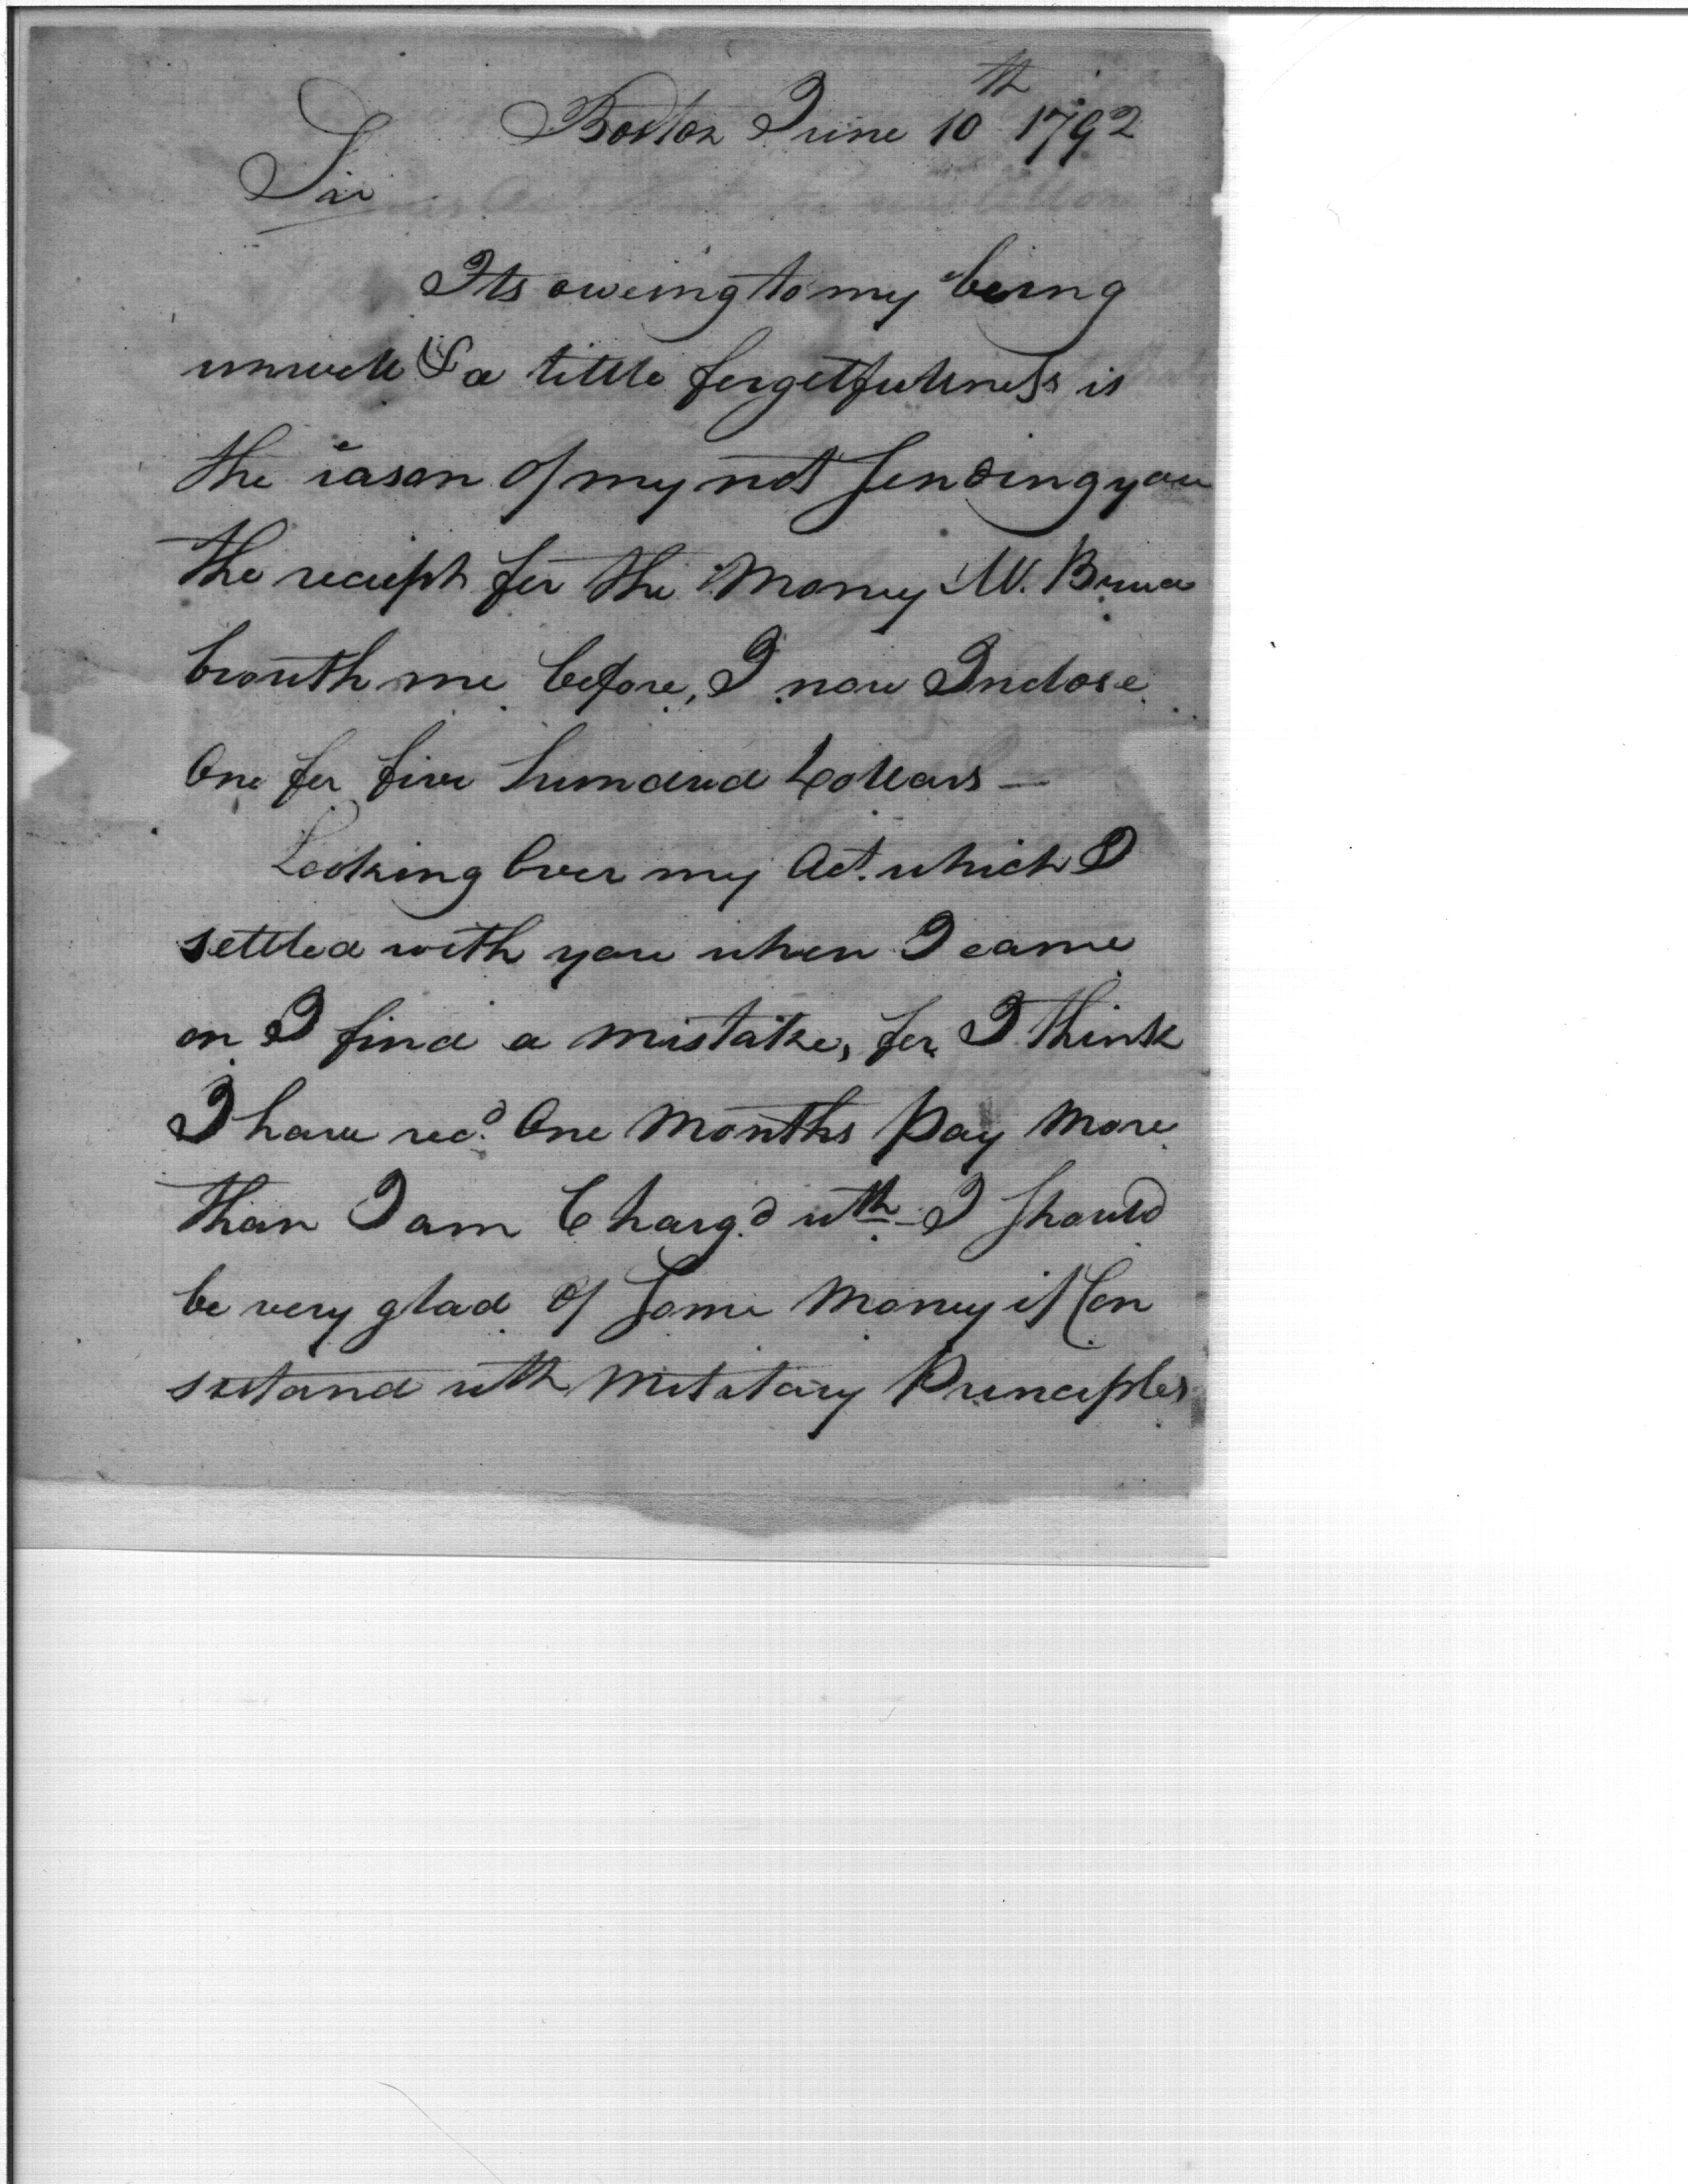 Boston June 10th 1792
Sir
Its oweing to my being
unwell & a little forgetfullness is
the reason of my not sending you
the reciept for the Money M.
brouth me before, I now Inclose
One for five hundred Dollars —
Looking Over my Act. which I
settled with you when I came
on I find a mistake, for I think
I have recd. One Months Pay More
than I am Chargd wth - I should
be very glad of some Money if Con
sistand with Military Principles